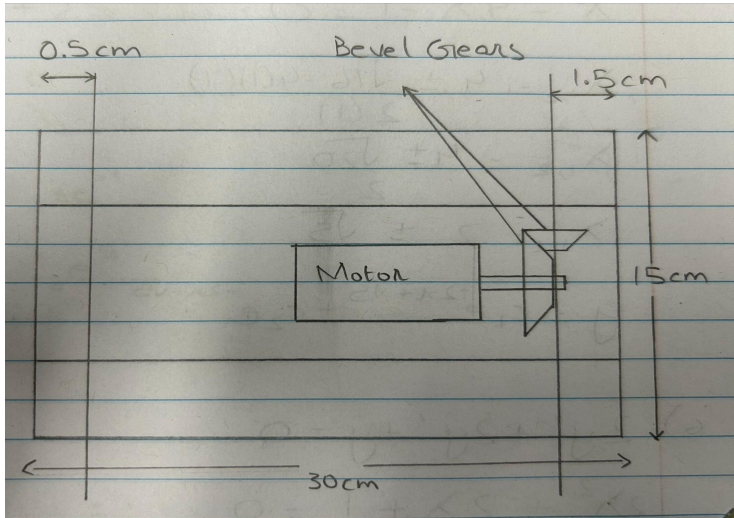 0.5cm
Bevel Gears
1.5cm
Motor
15cm
30cm